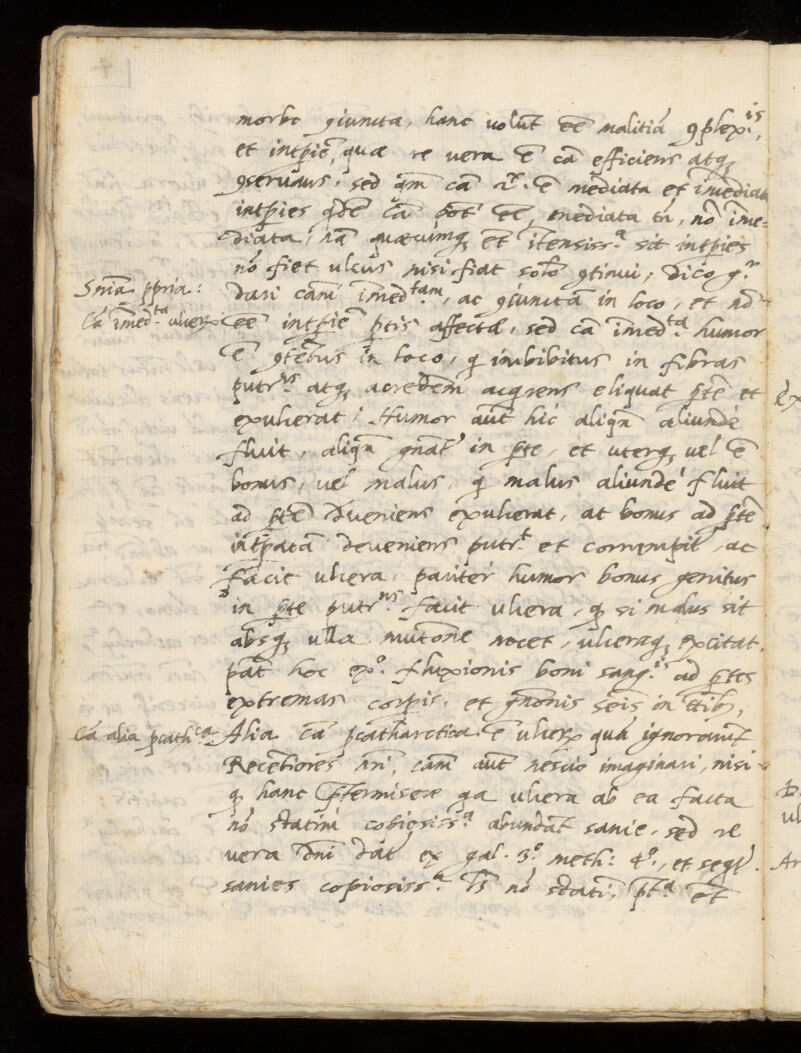 morbo ꝯiuncta, hanc volũt eẽ malitiã ꝯplex.is,
et intp̃iẽ, quæ re vera ẽ cã efficiens atq;
ꝯseruans, sed qm̃ cã 2.r ẽ mediata et im̃ediata
intp̃ies qdẽ cã pot eẽ, mediata tñ, nõ im̃e-
diata, nã quæcumq; et itensiss.a sit intp̃ies
nõ fiet ulcus nisi fiat solo ꝯtinui, dico g.r
Snĩa ppria:
dari cam im̃ed.tam, ac ꝯiunctã in loco, et nõ
Cã im̃ed.ta ulcerꝝ
eẽ intp̃iẽ ptis affectæ, sed cã im̃ed.ta humor
ẽ ꝯtẽtus in loco, q imbibitus in fibras
putr.ns atq; acredẽm acqrens eliquat ptẽ et
exulcerat; Humor aut hic aliqñ aliunde
fluit, aliqñ gnat' in pte, et uterq; vel ẽ
bonus, vel malus, q malus aliunde fluit
ad ptẽ dveniens exulcerat, at bonus ad ptẽ
intp̃atã deveniens putr.t et corrumpit, ac
facit ulcera, pariter humor bonus genitus
in pte putr.ns facit ulcera, q; si malus sit
absq; ulla mutone nocet, ulceraq; excitat.
pat hoc ex.o fluxionis boni sang.is ad ptes
extremas corpis, et gnonis
Cã alia pcath.ca
Alia cã pcatharctica ẽ ulcerꝝ quã ignorarũt
Recẽtiores nri, cam aut nescio imaginari, nisi
q; hanc ptermisere qa ulcera ab ea facta
nõ statim copiosiss.a abundãt sanie, sed re
vera dñi dat ex gal. 3.o meth: 4.o, et seq
sanies copiosiss.a nõ statim, et